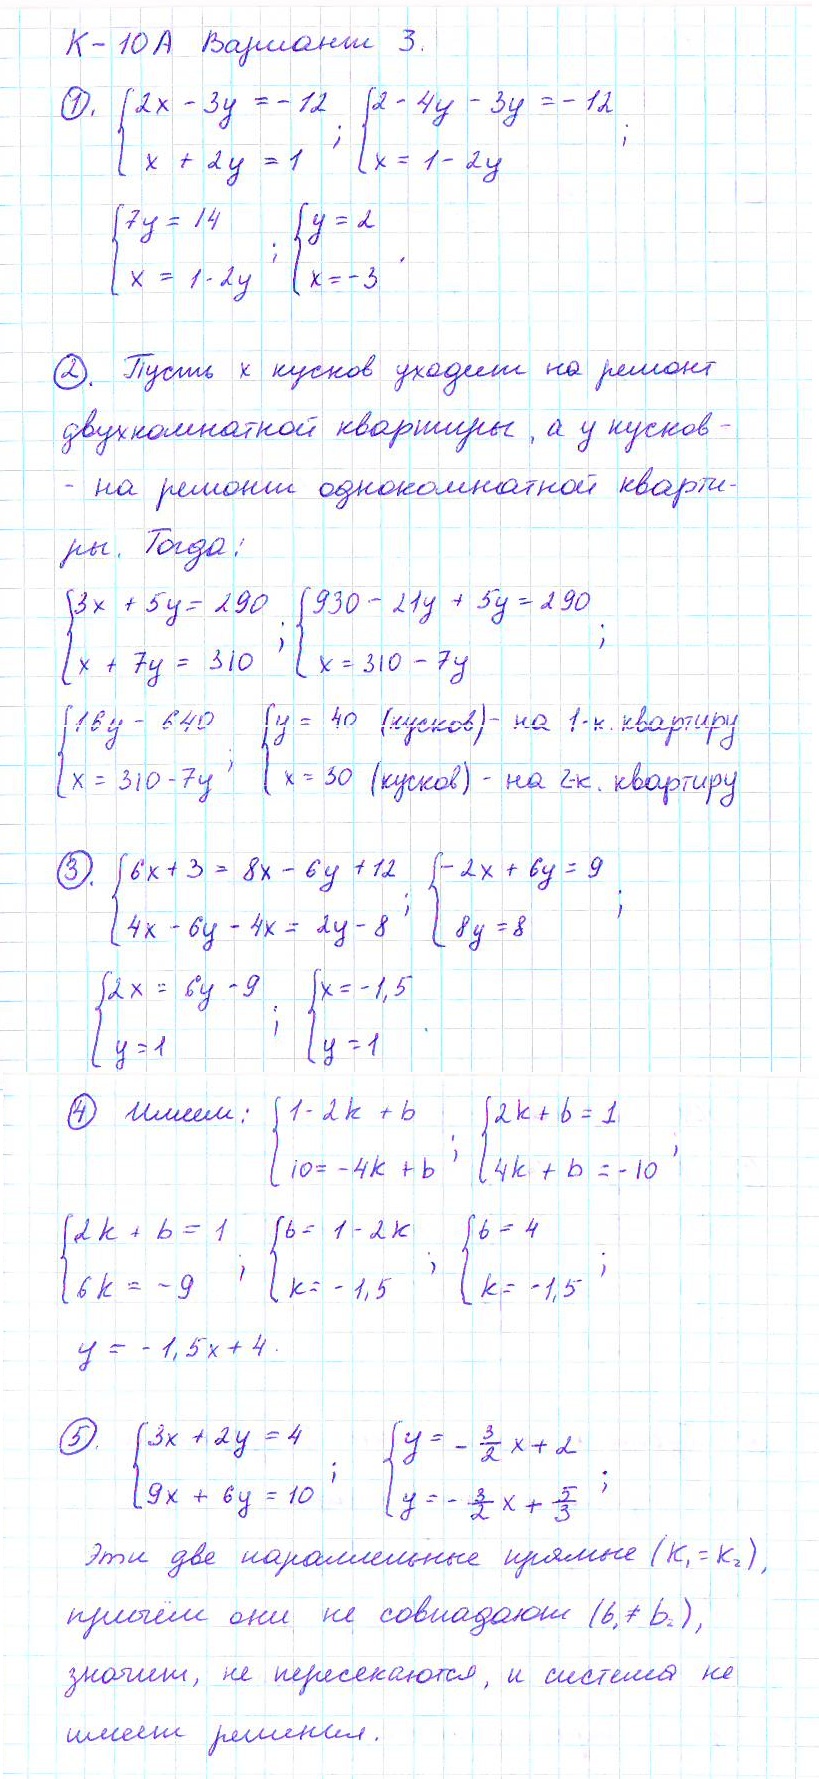 К-10А Вариант 3.
①. { 2x - 3y = -12 ; { 2 - 4y - 3y = -12 ;
{ x + 2y = 1 { x = 1 - 2y
{ 7y = 14 ; { y = 2 .
{ x = 1 - 2y { x = -3
②. Пусть x кусков уходит на ремонт
двухкомнатной квартиры, а y кусков -
- на ремонт однокомнатной кварти-
ры. Тогда:
{ 3x + 5y = 290 ; { 930 - 21y + 5y = 290 ;
{ x + 7y = 310 { x = 310 - 7y
{ 16y - 640 ; { y = 40 (кусков) - на 1-к. квартиру
{ x = 310 - 7y { x = 30 (кусков) - на 2-к. квартиру
③. { 6x + 3 = 8x - 6y + 12 ; { -2x + 6y = 9 ;
{ 4x - 6y - 4x = 2y - 8 { 8y = 8
{ 2x = 6y - 9 ; { x = -1,5 .
{ y = 1 { y = 1
④ Имеем: { 1 - 2k + b ; { 2k + b = 1 ;
{ 10 = -4k + b { 4k + b = -10
{ 2k + b = 1 ; { b = 1 - 2k ; { b = 4 ;
{ 6k = -9 { k = -1,5 { k = -1,5
y = -1,5x + 4.
⑤. { 3x + 2y = 4 ; { y = -3/2 x + 2 ;
{ 9x + 6y = 10 { y = -3/2 x + 5/3
Эти две параллельные прямые (k₁ = k₂),
причём они не совпадают (b₁ ≠ b₂),
значит, не пересекаются, и система не
имеет решения.